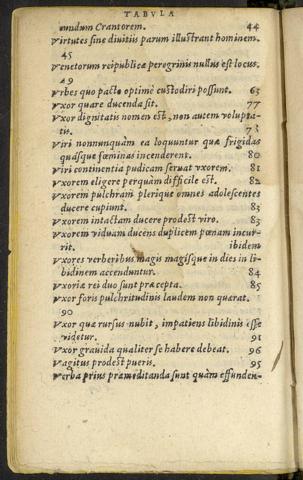 TABVLA
eundum Crantorem. 44
Virtutes sine diuitiis parum illustrant hominem.
45
Venetorum reipublicæ peregrinis nullus est locus.
49
Vrbes quo pacto optimè custodiri possunt. 63
Vxor quare ducenda sit. 77
Vxor dignitatis nomen est, non autem volupta-
tis. 73
Viri nonnunquàm ea loquuntur quæ frigidas
quásque fœminas incenderent. 80
Viri continentia pudicam seruat vxorem. 81
Vxorem eligere perquàm difficile est. 82
Vxorem pulchram plerique omnes adolescentes
ducere cupiunt. 83
Vxorem intactam ducere prodest viro. 83
Vxorem viduam ducens duplicem pœnam incur-
rit. ibidem
Vxores verberibus magis magísque in dies in li-
bidinem accenduntur. 84
Vxoriæ rei duo sunt præcepta. 85
Vxor foris pulchritudinis laudem non quærat.
90
Vxor quæ rursus nubit, impatiens libidinis esse
videtur. 91
Vxor grauida qualiter se habere debeat. 96
Vagitus prodest pueris. 95
Verba prius præmeditanda sunt quàm effunden-